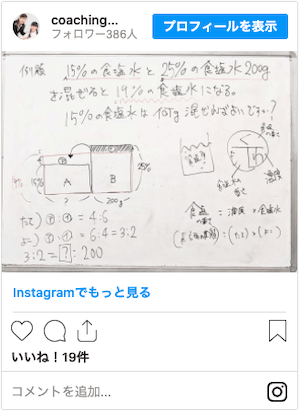 coaching...
フォロワー386人
プロフィールを表示
例題 15%の食塩水と25%の食塩水200g
を混ぜると19%の食塩水になる。
15%の食塩水は何g混ぜればよいですか?
19%
15%
25%
A
B
?
200g
濃度
食塩水の重さ
たて) ㋐:㋑=4:6
よこ) ㋐:㋑=6:4=3:2
3:2=?:200
食塩の重さ = 濃度 × 食塩水
= (たて) × (よこ)
Instagramでもっと見る
いいね！19件
コメントを追加...